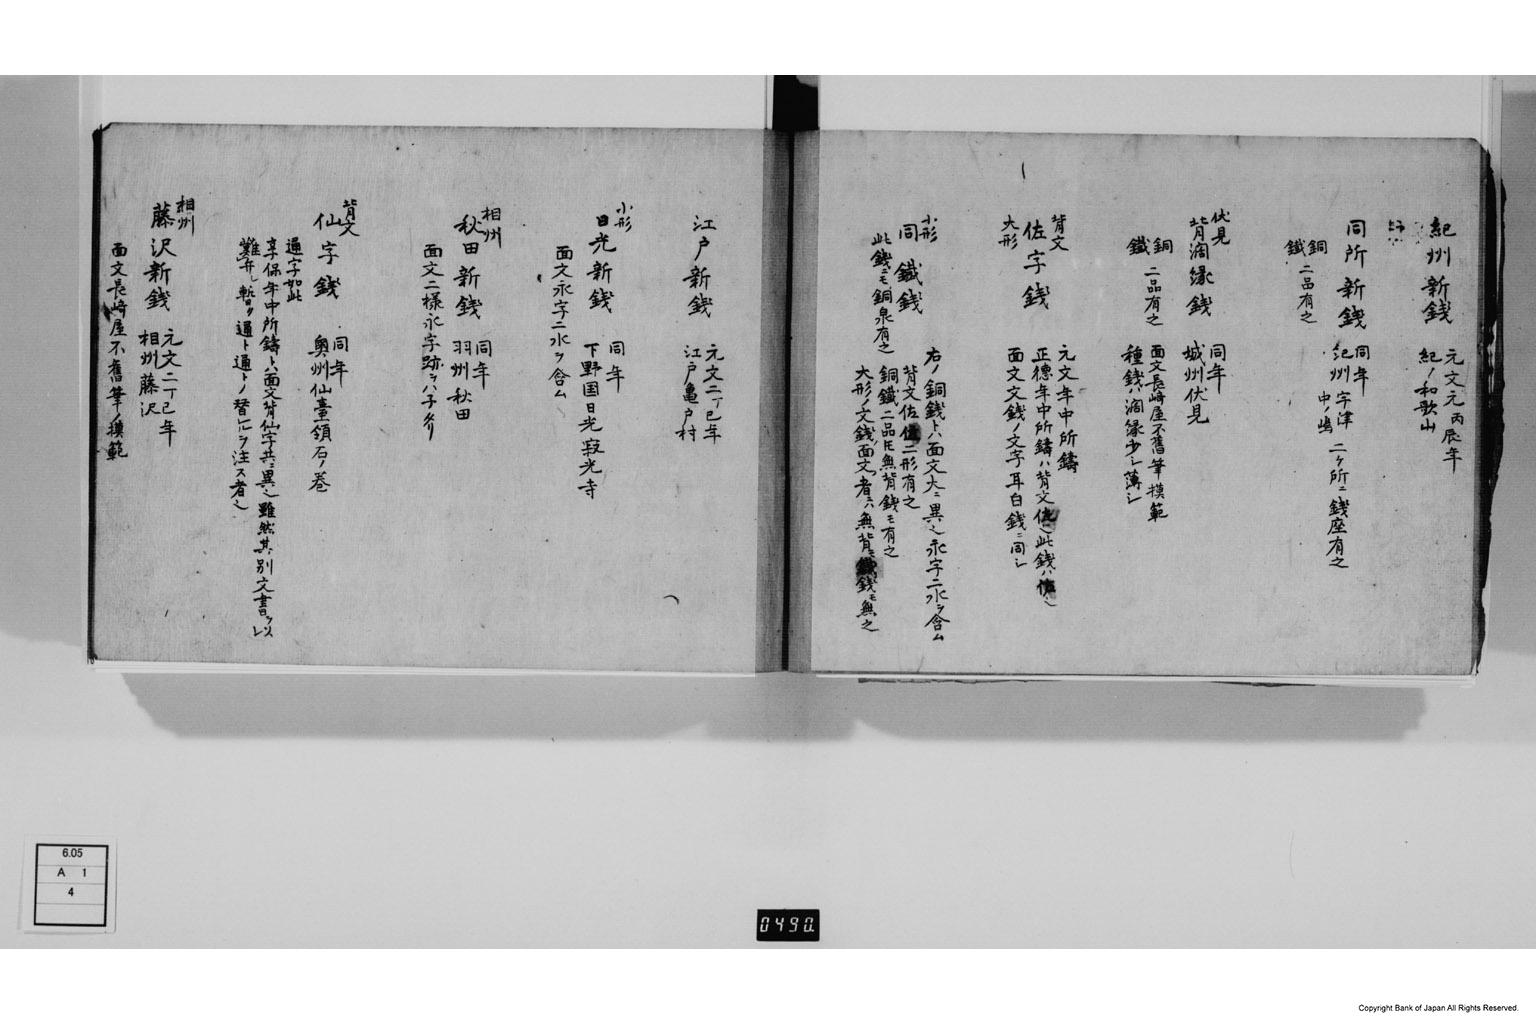 紀州新銭 元文元丙辰年
紀ノ和歌山
同所新銭 同年
紀州 宇津 中ノ嶋 二ケ所ニ銭座有之
銅
鐵 二品有之
伏見
背濶縁銭 同年
城州伏見
銅
鐵 二品有之
面文長﨑屋不舊筆摸範
種銭ハ濶縁少シ薄シ
背文
佐字銭 元文年中所鑄
大形
正德年中所鑄ハ背文 此銭ハ
面文文銭ノ文字耳白銭ニ同シ
小形
同 鐵銭 右ノ銅銭トハ面文大ニ異之永字二水ヲ含ム
背文佐 二形有之
此銭ニモ銅泉有之
銅鐵二品トモ無背銭モ有之
大形ノ文銭面文ノ者ニハ無背 銭モ無之
江戸新銭 元文二丁巳年
江戸亀戸村
小形
日光新銭 同年
下野国日光寂光寺
面文永字二水ヲ含ム
相州
秋田新銭 同年
羽州秋田
面文二様永字跡ラハ子タリ
背文
仙字銭 同年
奥州仙臺領石ノ巻
通字如此
享保年中所鑄トハ面文背仙字共ニ異之雖然其別文書ヲ以
難弁シ暫ク通ト通トノ替ルヲ注ス者之
相州
藤沢新銭 元文二丁巳年
相州藤沢
面文長﨑屋不舊筆ノ摸範
6.05
A 1
4
0490
Copyright Bank of Japan All Rights Reserved.